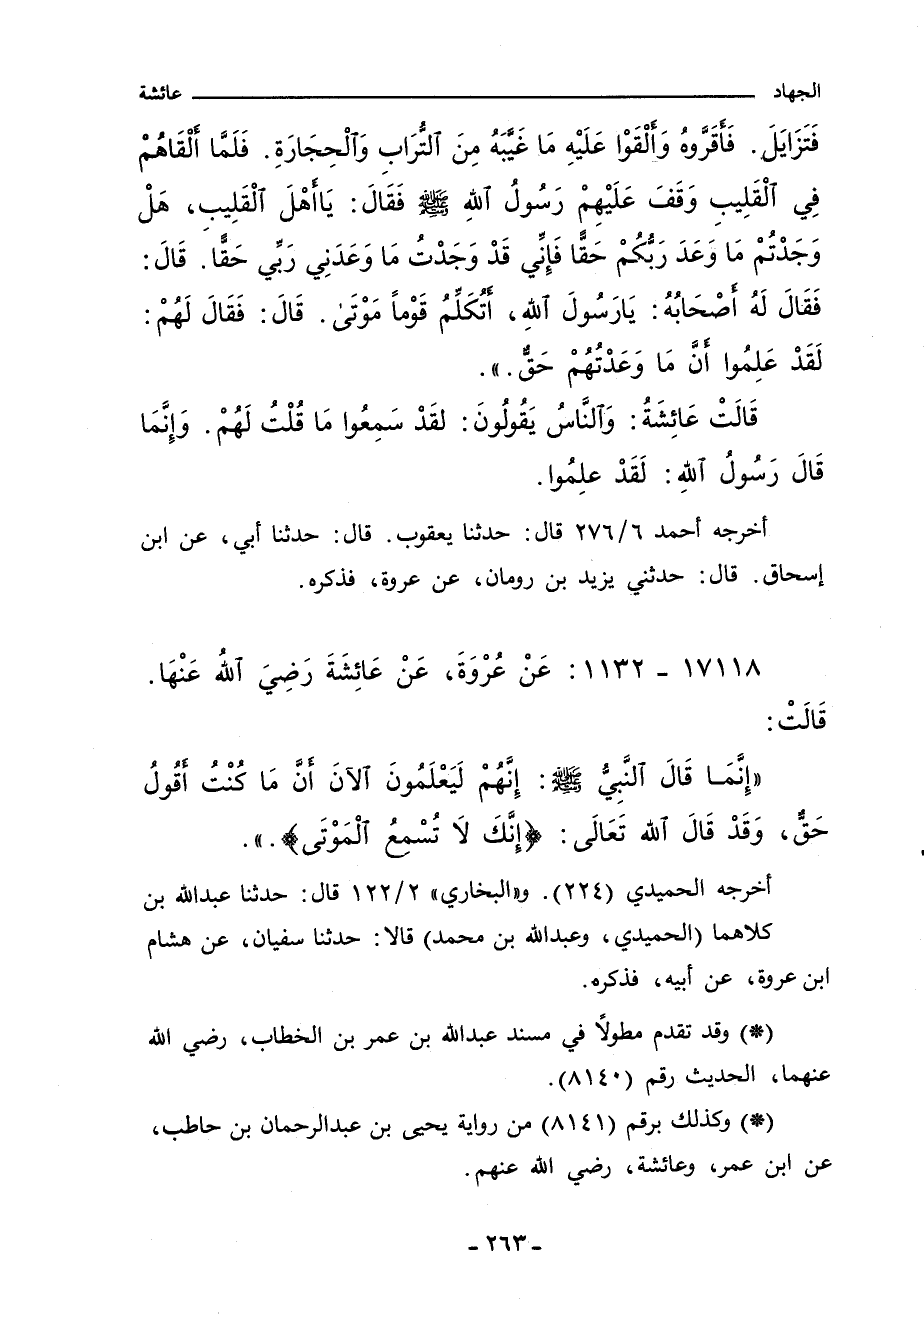 الجهاد ـــــــــــــــــــــــــــــــــــــــــ عائشة
فَتَزَايَلَ. فَأَقَرُّوهُ وَأَلْقَوْا عَلَيْهِ مَا غَيَّبَهُ مِنَ ٱلتُّرَابِ وَٱلْحِجَارَةِ. فَلَمَّا أَلْقَاهُمْ
فِي ٱلْقَلِيبِ وَقَفَ عَلَيْهِمْ رَسُولُ ٱللهِ ﷺ فَقَالَ: يَاأَهْلَ ٱلْقَلِيبِ، هَلْ
وَجَدْتُمْ مَا وَعَدَ رَبُّكُمْ حَقًّا فَإِنِّي قَدْ وَجَدْتُ مَا وَعَدَنِي رَبِّي حَقًّا. قَالَ:
فَقَالَ لَهُ أَصْحَابُهُ: يَارَسُولَ ٱللهِ، أَتُكَلِّمُ قَوْماً مَوْتَىٰ. قَالَ: فَقَالَ لَهُمْ:
لَقَدْ عَلِمُوا أَنَّ مَا وَعَدْتُهُمْ حَقٌّ.».
قَالَتْ عَائِشَةُ: وَٱلنَّاسُ يَقُولُونَ: لقَدْ سَمِعُوا مَا قُلْتُ لَهُمْ. وَإِنَّمَا
قَالَ رَسُولُ ٱللهِ: لَقَدْ علِمُوا.
أخرجه أحمد ٦/ ٢٧٦ قال: حدثنا يعقوب. قال: حدثنا أبي، عن ابن
إسحاق. قال: حدثني يزيد بن رومان، عن عروة، فذكره.
١٧١١٨ - ١١٣٢: عَنْ عُرْوَةَ، عَنْ عَائِشَةَ رَضِيَ ٱللهُ عَنْهَا.
قَالَتْ:
«إِنَّمَا قَالَ ٱلنَّبِيُّ ﷺ: إِنَّهُمْ لَيَعْلَمُونَ ٱلآنَ أَنَّ مَا كُنْتُ أَقُولُ
حَقٌّ، وَقَدْ قَالَ ٱلله تَعَالَى: ﴿إِنَّكَ لَا تُسْمِعُ ٱلْمَوْتَى﴾.».
أخرجه الحميدي (٢٢٤). و«البخاري» ٢/ ١٢٢ قال: حدثنا عبدالله بن
كلاهما (الحميدي، وعبدالله بن محمد) قالا: حدثنا سفيان، عن هشام
ابن عروة، عن أبيه، فذكره.
(*) وقد تقدم مطولاً في مسند عبدالله بن عمر بن الخطاب، رضي الله
عنهما، الحديث رقم (٨١٤٠).
(*) وكذلك برقم (٨١٤١) من رواية يحيى بن عبدالرحمان بن حاطب،
عن ابن عمر، وعائشة، رضي الله عنهم.
- ٢٦٣ -